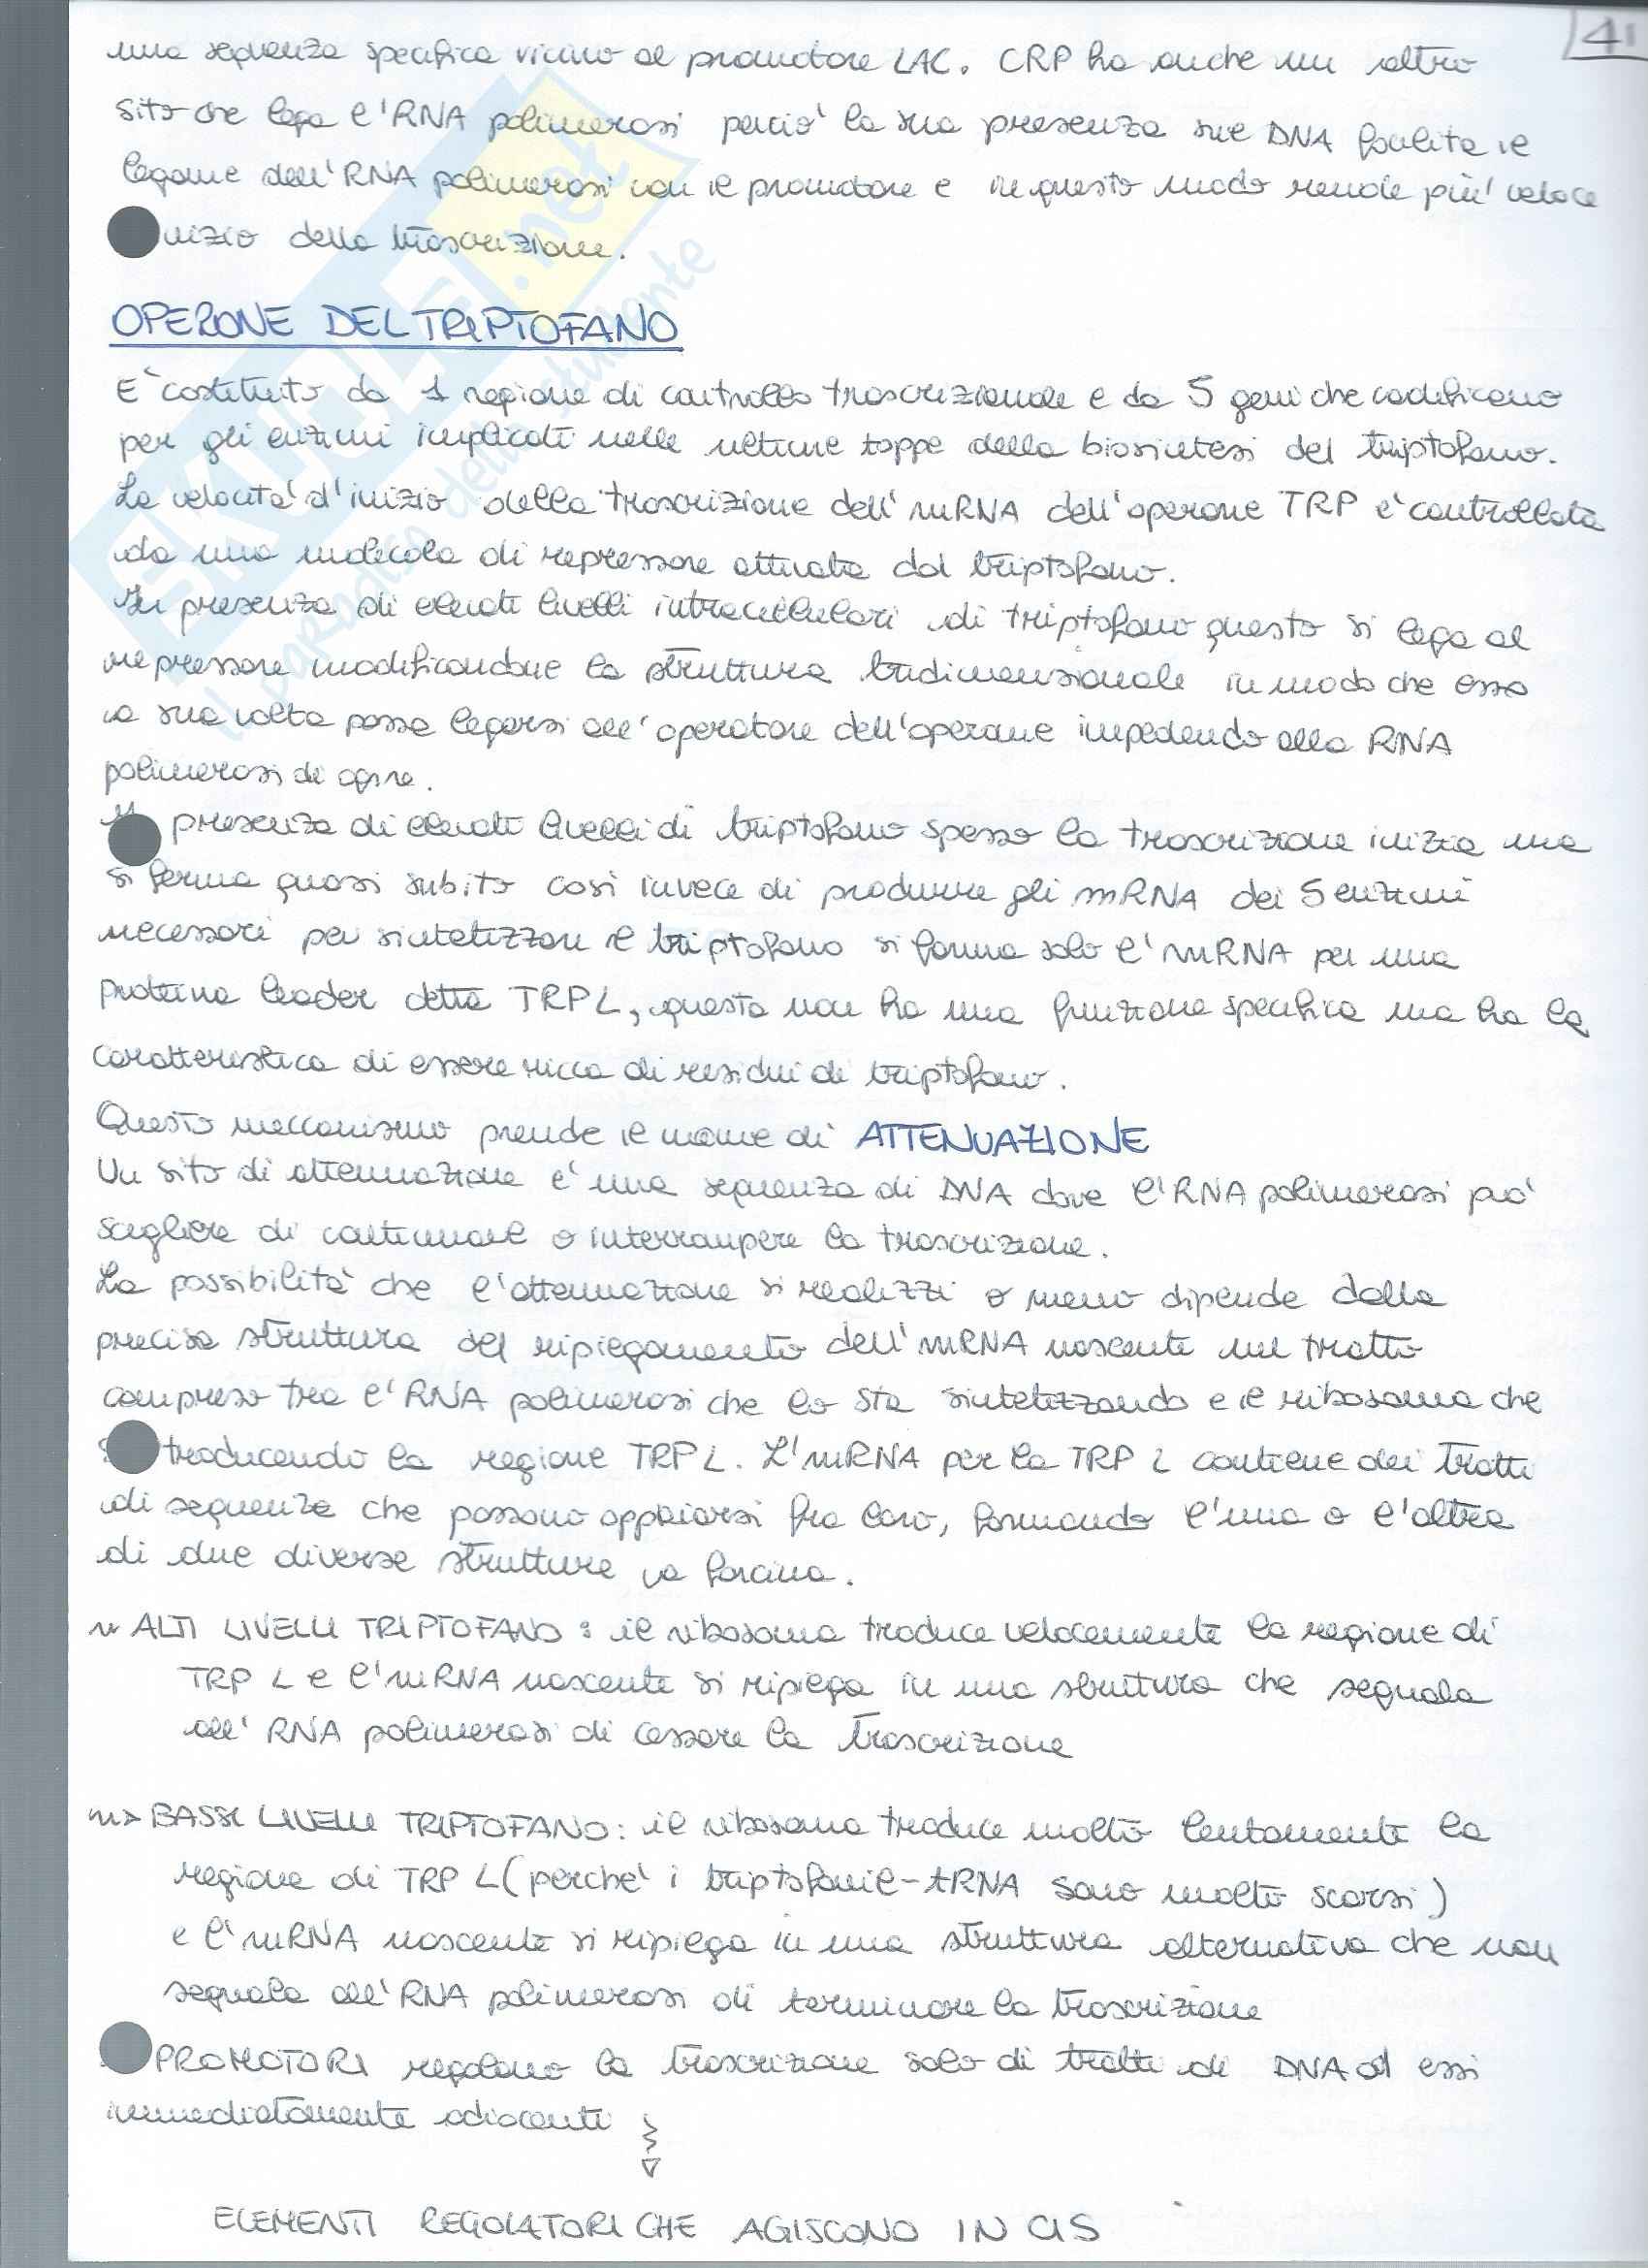 41
una sequenza specifica vicino al promotore LAC. CRP ha anche un altro
sito che lega l'RNA polimerasi perciò la sua presenza sul DNA facilita il
legame dell'RNA polimerasi con il promotore e in questo modo rende più veloce
nizio della trascrizione.
OPERONE DEL TRIPTOFANO
E' costituito da 1 regione di controllo trascrizionale e da 5 geni che codificano
per gli enzimi implicati nelle ultime tappe della biosintesi del triptofano.
La velocità d'inizio della trascrizione dell'mRNA dell'operone TRP è controllata
da una molecola di repressore attivata dal triptofano.
In presenza di elevati livelli intracellulari di triptofano questo si lega al
repressore modificandone la struttura tridimensionale in modo che esso
a sua volta possa legarsi all'operatore dell'operone impedendo alla RNA
polimerasi di agire.
presenza di elevati livelli di triptofano spesso la trascrizione inizia ma
si ferma quasi subito così invece di produrre gli mRNA dei 5 enzimi
necessari per sintetizzare il triptofano si forma solo l'mRNA per una
proteina leader detta TRP L, questa non ha una funzione specifica ma ha la
caratteristica di essere ricca di residui di triptofano.
Questo meccanismo prende il nome di ATTENUAZIONE
Un sito di attenuazione è una sequenza di DNA dove l'RNA polimerasi può
scegliere di continuare o interrompere la trascrizione.
La possibilità che l'attenuazione si realizzi o meno dipende dalla
precisa struttura del ripiegamento dell'mRNA nascente nel tratto
compreso tra l'RNA polimerasi che lo sta sintetizzando e il ribosoma che
traducendo la regione TRP L. L'mRNA per la TRP L contiene dei tratti
di sequenza che possono appaiarsi fra loro, formando l'una o l'altra
di due diverse strutture a forcina.
ALTI LIVELLI TRIPTOFANO: il ribosoma traduce velocemente la regione di
TRP L e l'mRNA nascente si ripiega in una struttura che segnala
all'RNA polimerasi di cessare la trascrizione
BASSI LIVELLI TRIPTOFANO: il ribosoma traduce molto lentamente la
regione di TRP L (perchè i triptofanil-tRNA sono molto scarsi)
e l'mRNA nascente si ripiega in una struttura alternativa che non
segnala all'RNA polimerasi di terminare la trascrizione
PROMOTORI regolano la trascrizione solo di tratti di DNA ad essi
immediatamente adiacenti
ELEMENTI REGOLATORI CHE AGISCONO IN CIS
SKUOLA.net
il paradiso dello studente